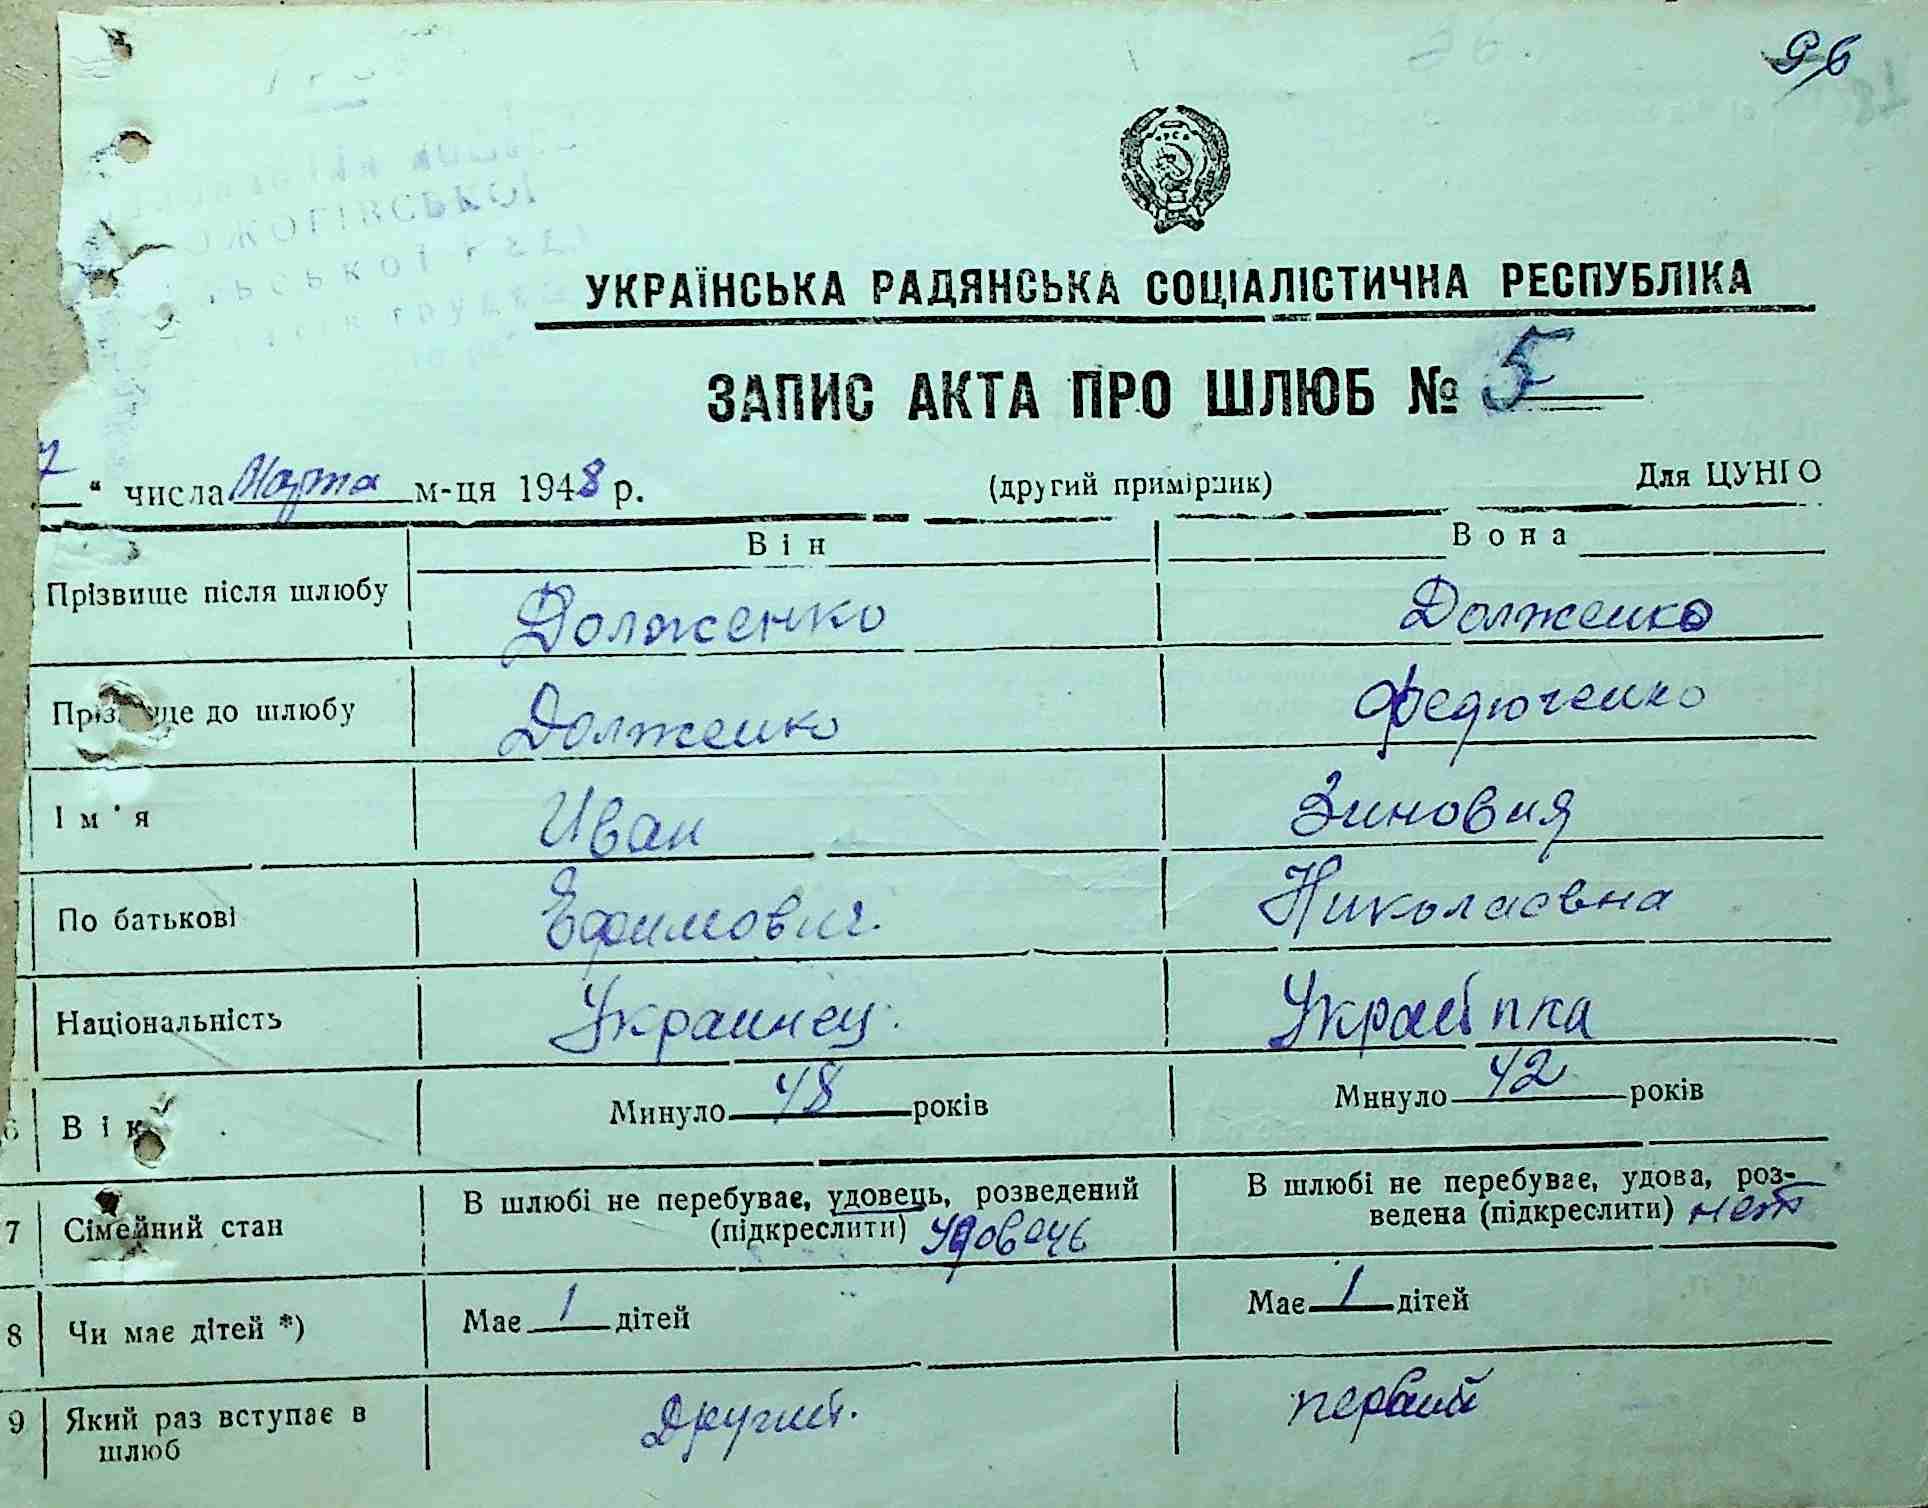 96
ОЖОГІВСЬКОЇ
УКРАЇНСЬКА РАДЯНСЬКА СОЦІАЛІСТИЧНА РЕСПУБЛІКА
ЗАПИС АКТА ПРО ШЛЮБ № 5
7 " числа Марта м-ця 1948 р. (другий примірник) Для ЦУНГО
Він Вона
Прізвище після шлюбу Долженко Долженко
Прізвище до шлюбу Долженко Федюченко
Ім'я Иван Зиновия
По батькові Ефимович. Николаевна
Національність Украинец. Украінка
6 Вік Минуло 48 років Минуло 42 років
7 Сімейний стан В шлюбі не перебуває, удовець, розведений (підкреслити) удовець В шлюбі не перебуває, удова, розведена (підкреслити) нет
8 Чи має дітей *) Має 1 дітей Має 1 дітей
9 Який раз вступає в шлюб Другий. первий